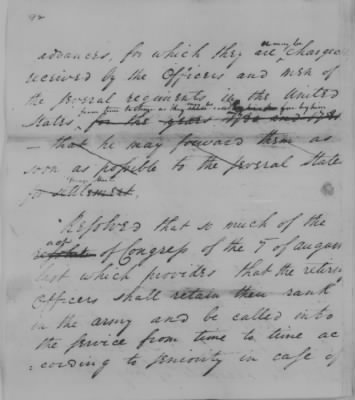 92
advances, for which they are chargeable
received by the Officers and men of
the several regiments in the United
States for the years 1780 and 1781
- that he may forward them as
soon as possible to the several States
for settlement.
Resolved that so much of the
act
of Congress of the 7 of august
last which provides that the retiring
Officers shall retain their rank
in the army and be called into
the service from time to time ac
cording to seniority in case of